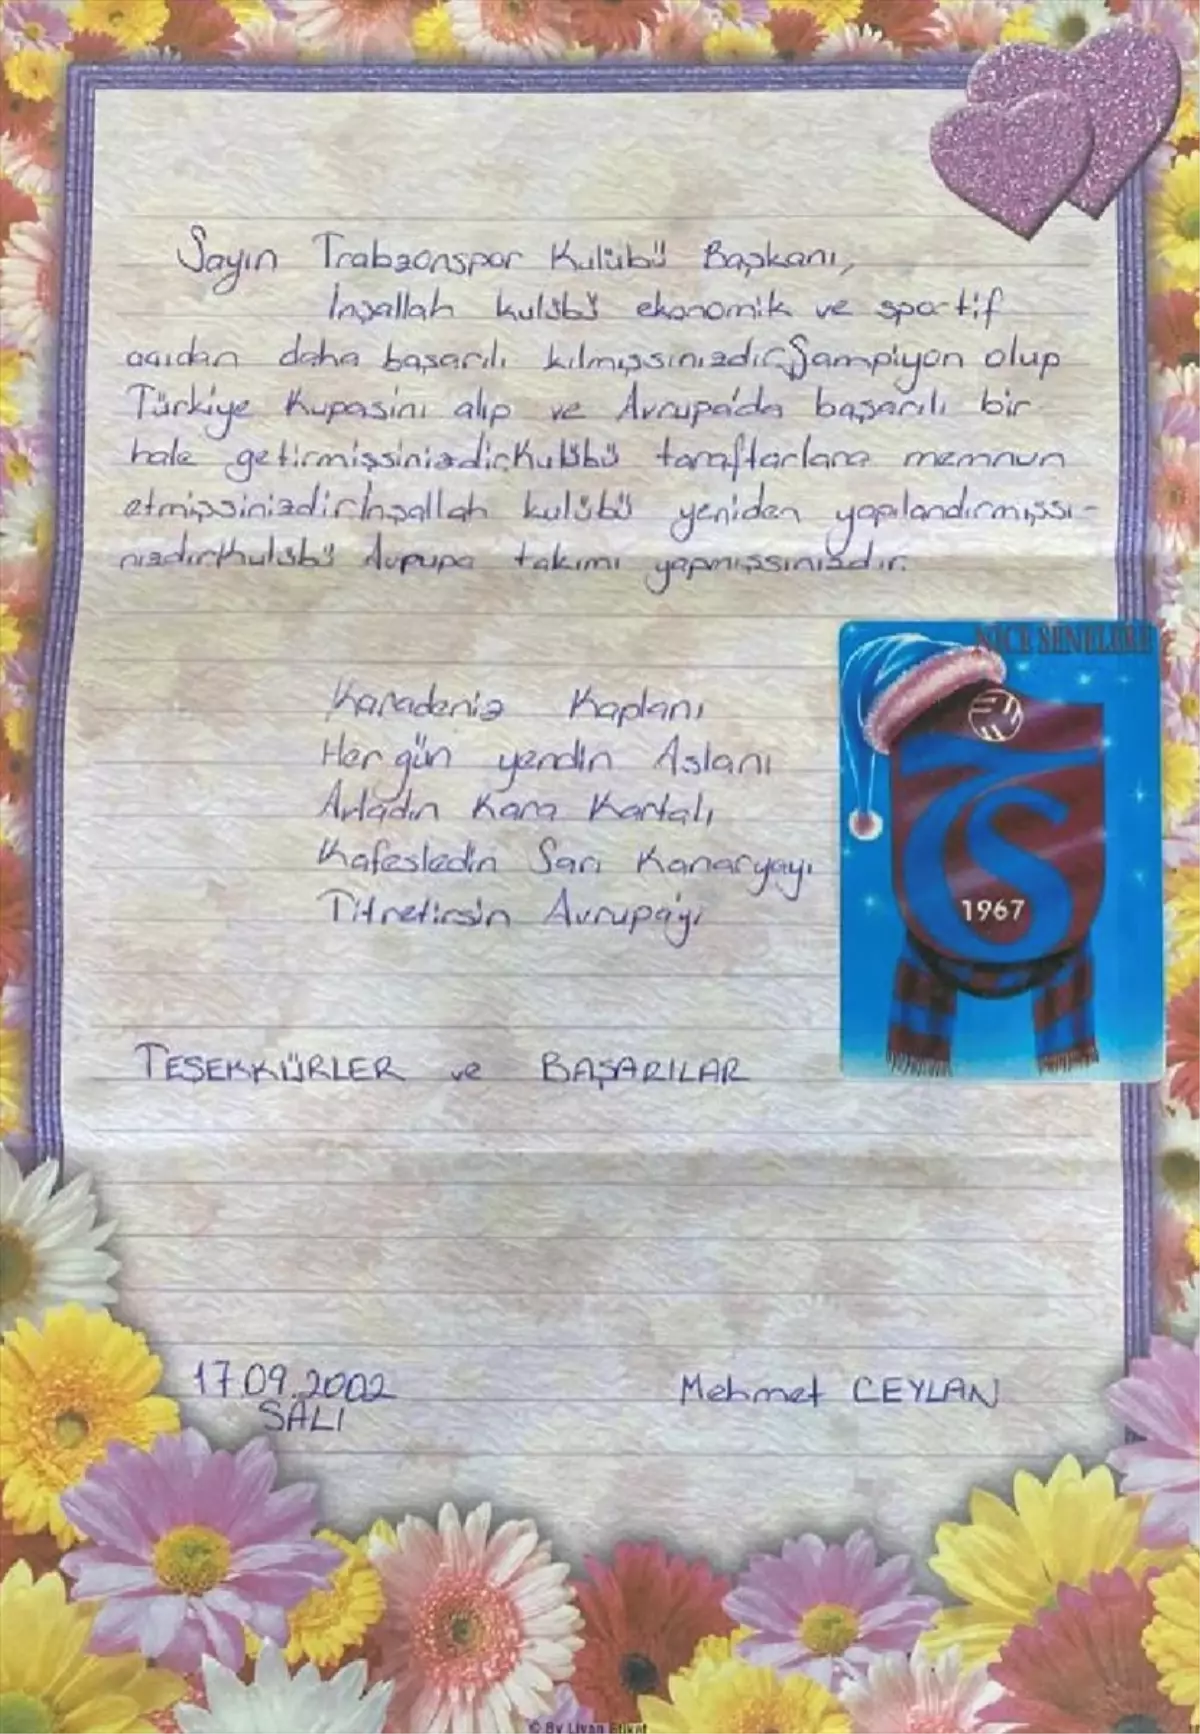 Sayın Trabzonspor Kulübü Başkanı,
İnşallah kulübü ekonomik ve sportif
açıdan daha başarılı kılmışsınızdır.Şampiyon olup
Türkiye Kupasını alıp ve Avrupa'da başarılı bir
hale getirmişsinizdir.Kulübü taraftarlara memnun
etmişsinizdir.İnşallah kulübü yeniden yapılandırmışsı-
nızdır.Kulübü Avpupa takımı yapmışsınızdır.
NİCE SENELERE
Karadeniz Kaplanı
Her gün yendin Aslanı
Avladın Kara Kartalı
Kafesledin Sarı Kanaryayı
Titretirsin Avrupa'yı
TS
1967
TEŞEKKÜRLER ve BAŞARILAR
17.09.2002 Mehmet CEYLAN
SALI
© By Livan Etiket